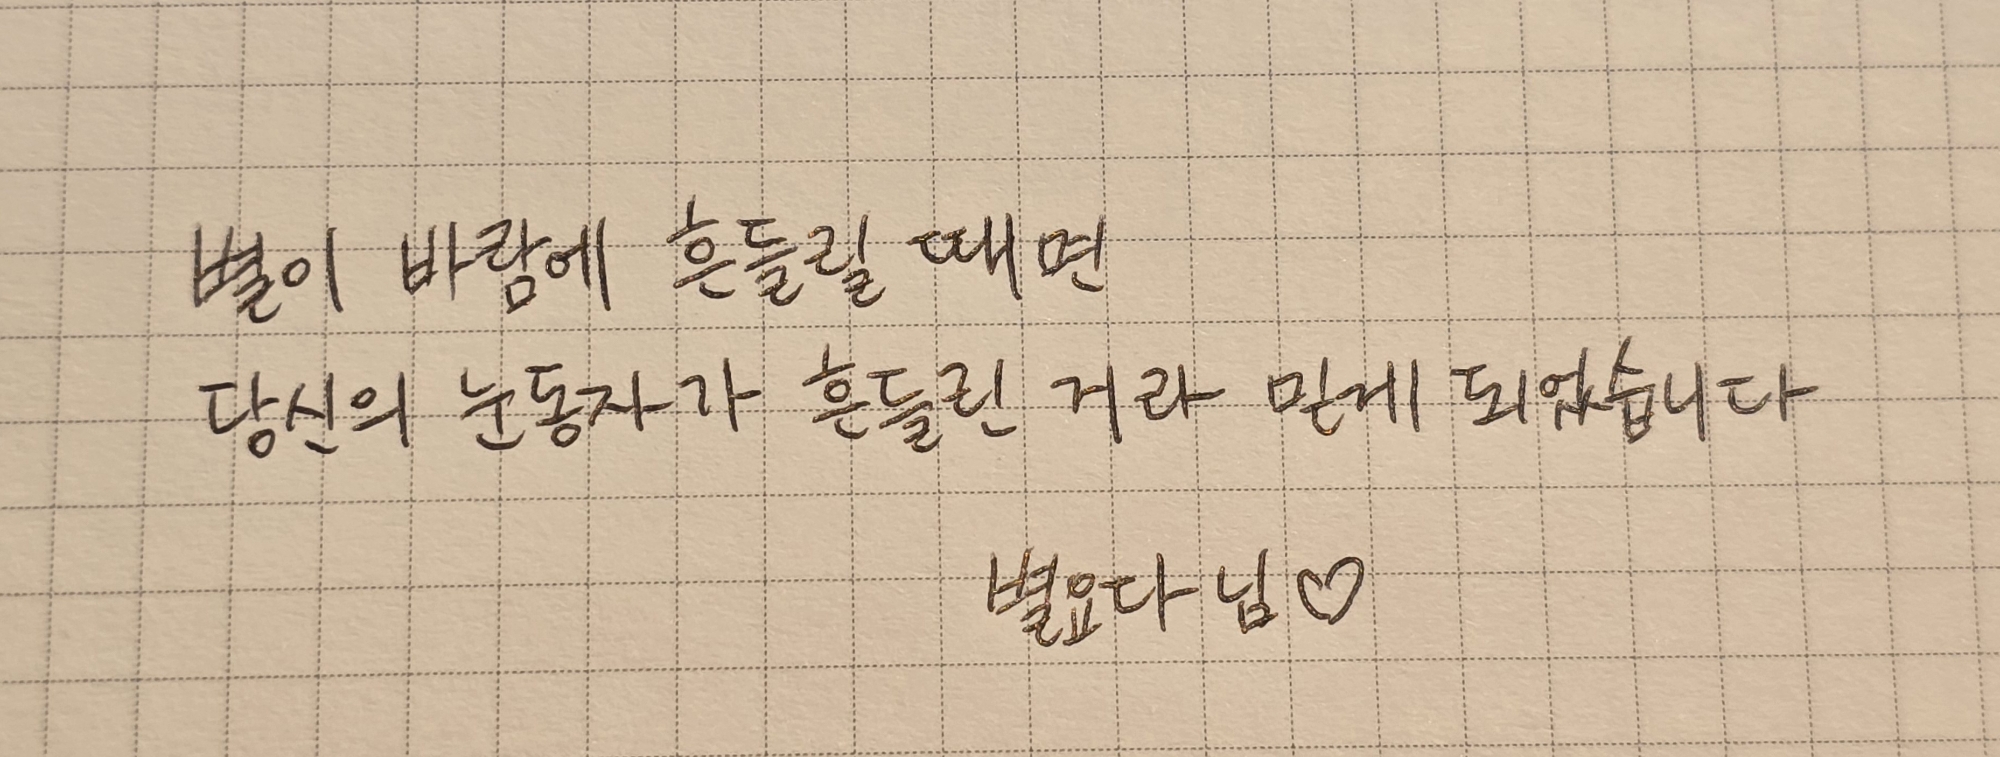 별이 바람에 흔들릴 때면
당신의 눈동자가 흔들린 거라 믿게 되었습니다
별요다 님♡